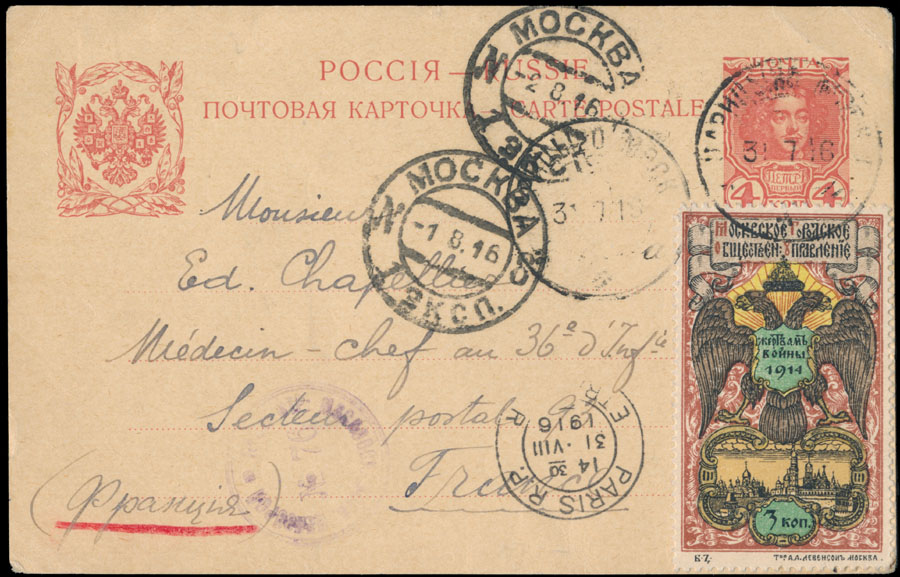 РОССІЯ — RUSSIE
ПОЧТОВАЯ КАРТОЧКА CARTE POSTALE
ПОЧТА
ПЕТРЪ
ПЕРВЫЙ
4 4
МОСКВА
-2 8.16
1 ЭКСП.
МОСКВА 25
-1 8.16
1 ЭКСП.
31 7 16
31 7 16
Monsieur
Ed. Chapelle
Médecin - chef au 36e d'Inf-ie
Secteur postal
France
(Франція)
PARIS R.P.
ETR.
14 30
31 · VIII
1916
Московское Городское
Общественное Управленіе
жертвамъ
войны
1914
3 коп.
Т-во А.А.ЛЕВЕНСОНЪ МОСКВА.